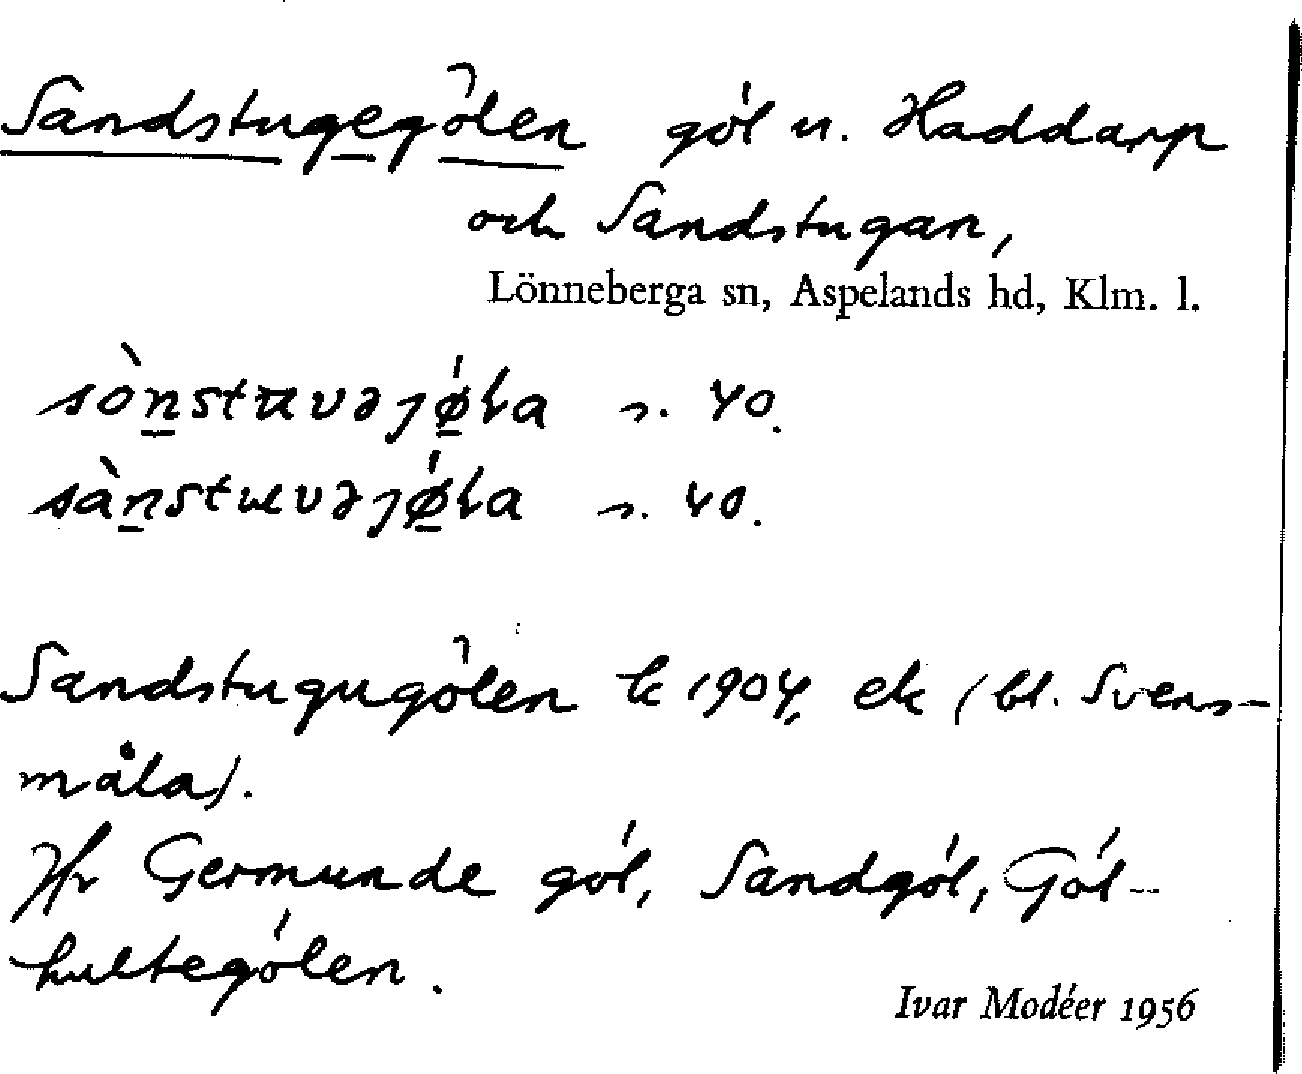 Sandstugegölen göl u. Haddarp
och Sandstugan,
Lönneberga sn, Aspelands hd, Klm. l.
sò̱nstuvəjǿ̱ɫa s. 40.
sàṉstuvəjǿ̱ɫa s. 40.
Sandstugugölen k 1904, ek (bl. Svens-
måla).
Jfr Germunde göl, Sandgöl, Göl-
hultegölen.
Ivar Modéer 1956